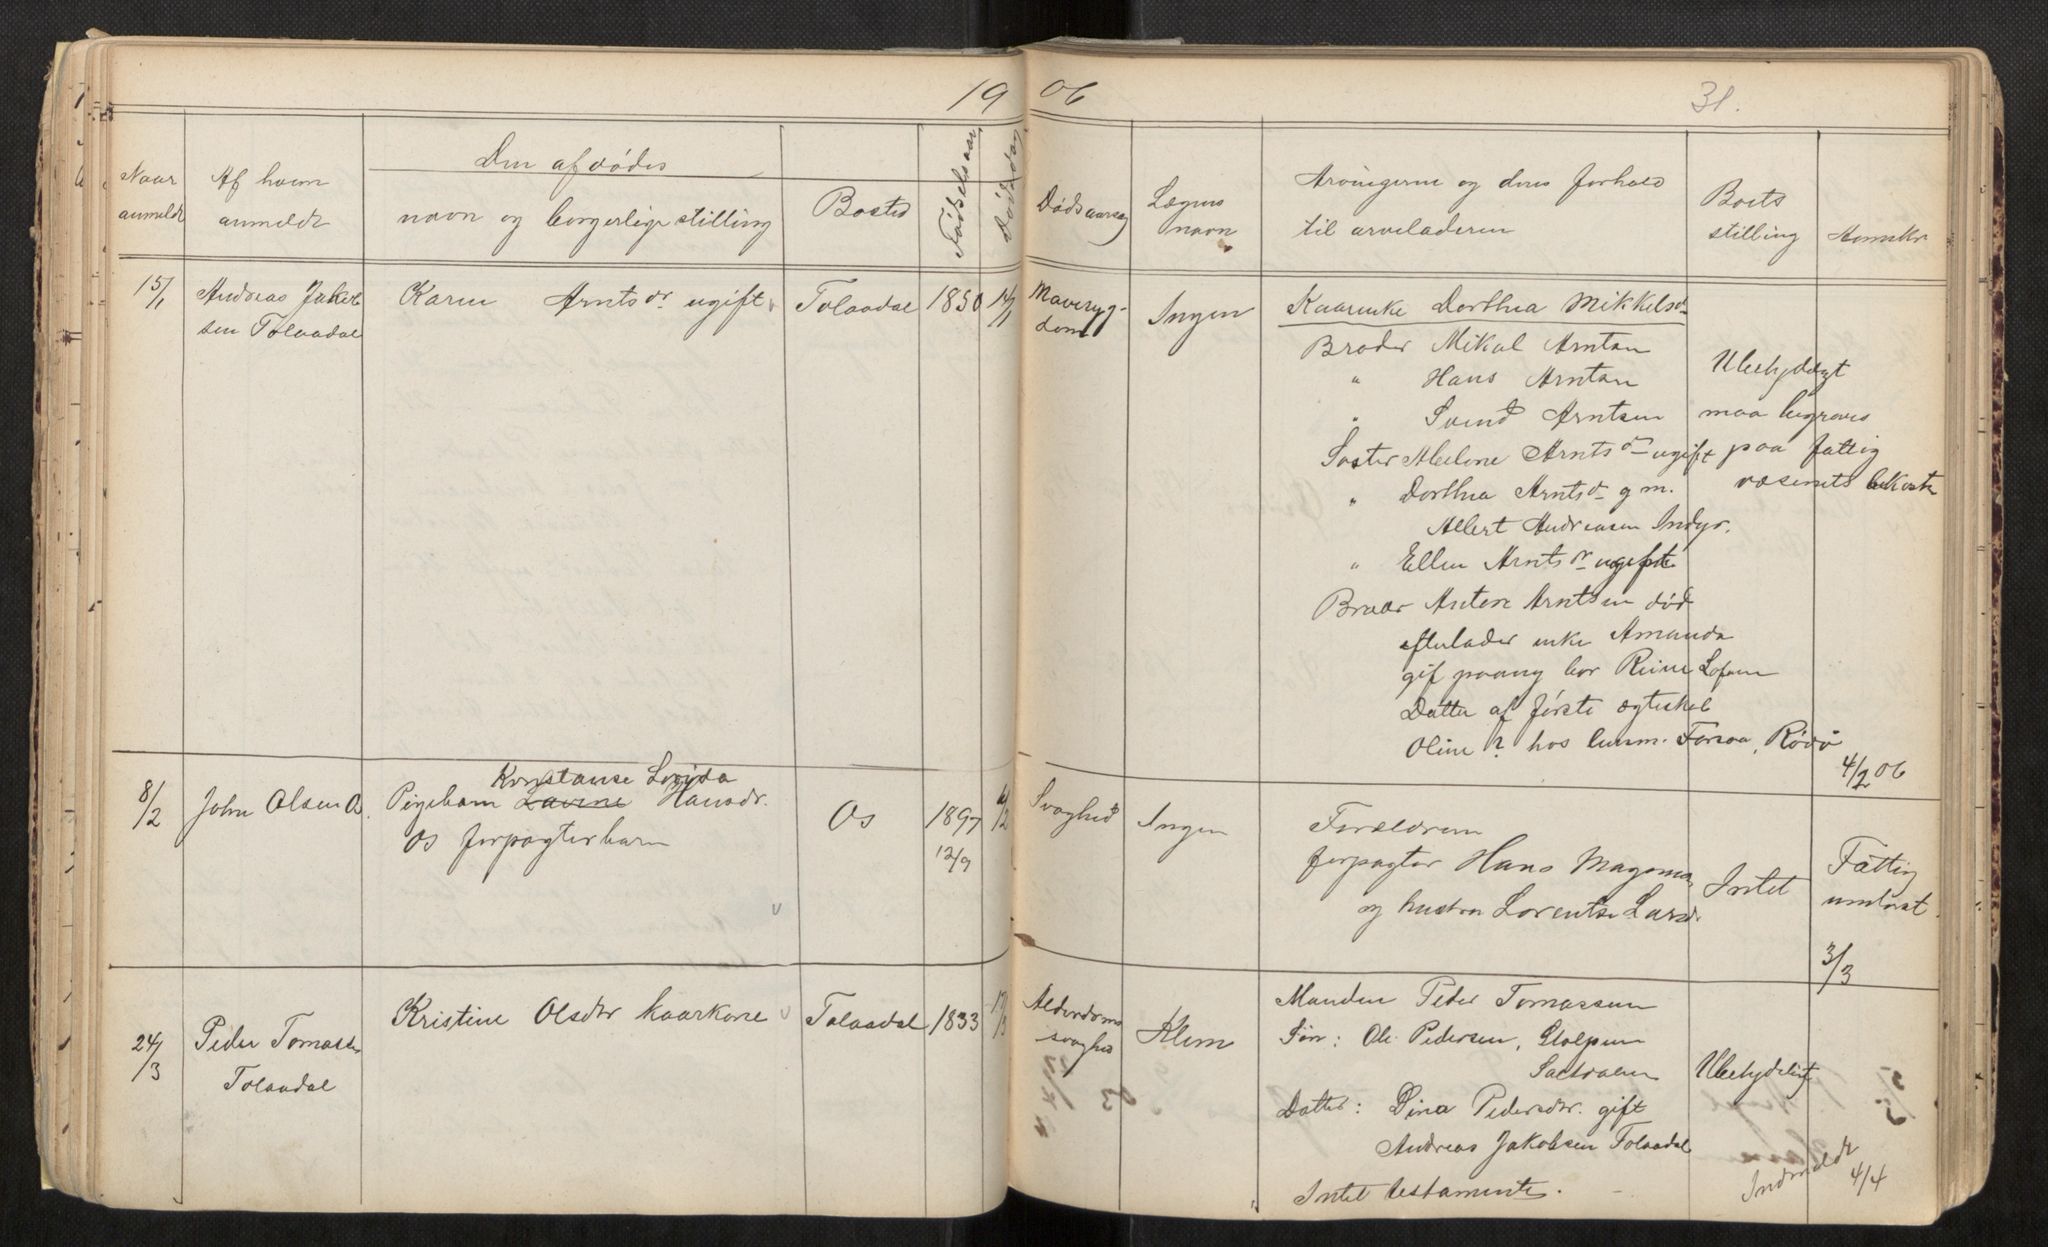 1906
31.
Naar anmeldt
Af hvem anmeldt
Den afdødes
navn og borgerlige stilling
Bosted
Fødselsaar
Dødsdag
Dødsaarsag
Lægens navn
Arvingerne og deres forhold
til arveladeren
Boets stilling
Anmkr
15/1
Andreas Jakob
sen Tolaadal
Karen Arntsdr ugift
Tolaadal
1850
14/1
Mavesyg-
dom
Ingen
Kaarenke Dorthea Mikkelsd
Broder Mikal Arntsn
" Hans Arntsn
" Svend Arntsen
Søster Abelone Arntsdr ugift
" Dorthea Arntsd g m.
Albert Andreasen Indyr.
" Ellen Arntsdr ugift
Broder Anton Arntsen død
efterlader enke Amanda
gif paany bor Reine Lofoten
Datter af første ægteskab
Oline ? hos lensm. Forsaa, Rødø
Ubetydeligt
maa begraves
paa fattig
væsenets bekostn
4/2 06
8/2
John Olsen Os.
Konstanse Lovida
Pigebarn Lavine Hansdr.
Os forpagterbarn
Os
1897
12/9
6/2
Svaghed
Ingen
Forældrene
forpagter Hans Magnus
og hustru Lorentse Larsdr.
Intet
Fattig
underst.
3/3
24/3
Peder Tomassen
Tolaadal
Kristine Olsdtr kaarkone
Tolaadal
1833
17/3
Alderdoms
svaghed
Klem
Manden Peder Tomassen
Søn: Ole Pedersen, Stolpen
Saltdalen
Datter: Dina Pedersdtr. gift
Andreas Jakobsen Tolaadal
Intet testamente.
Ubetydeligt
Indmeldt
4/4